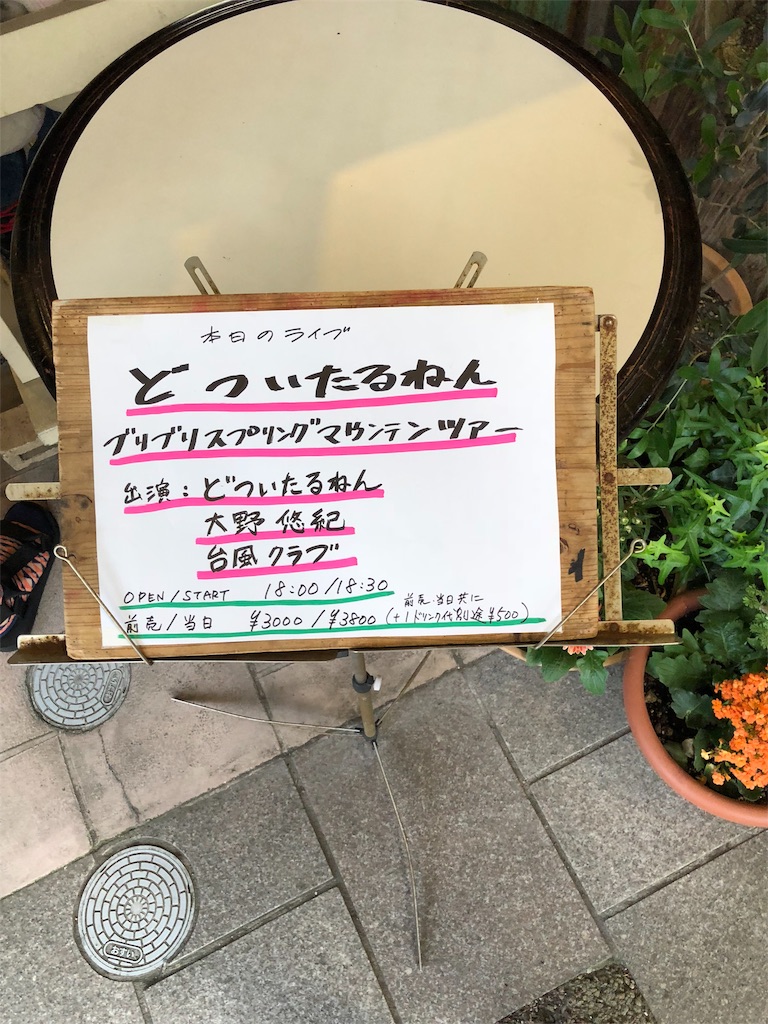 本日のライブ
どついたるねん
ブリブリスプリングマウンテンツアー
出演:どついたるねん
大野 悠紀
台風クラブ
OPEN/START 18:00/18:30
前売/当日 ¥3000/¥3800 (前売・当日共に
+1ドリンク代別途¥500)
おすい